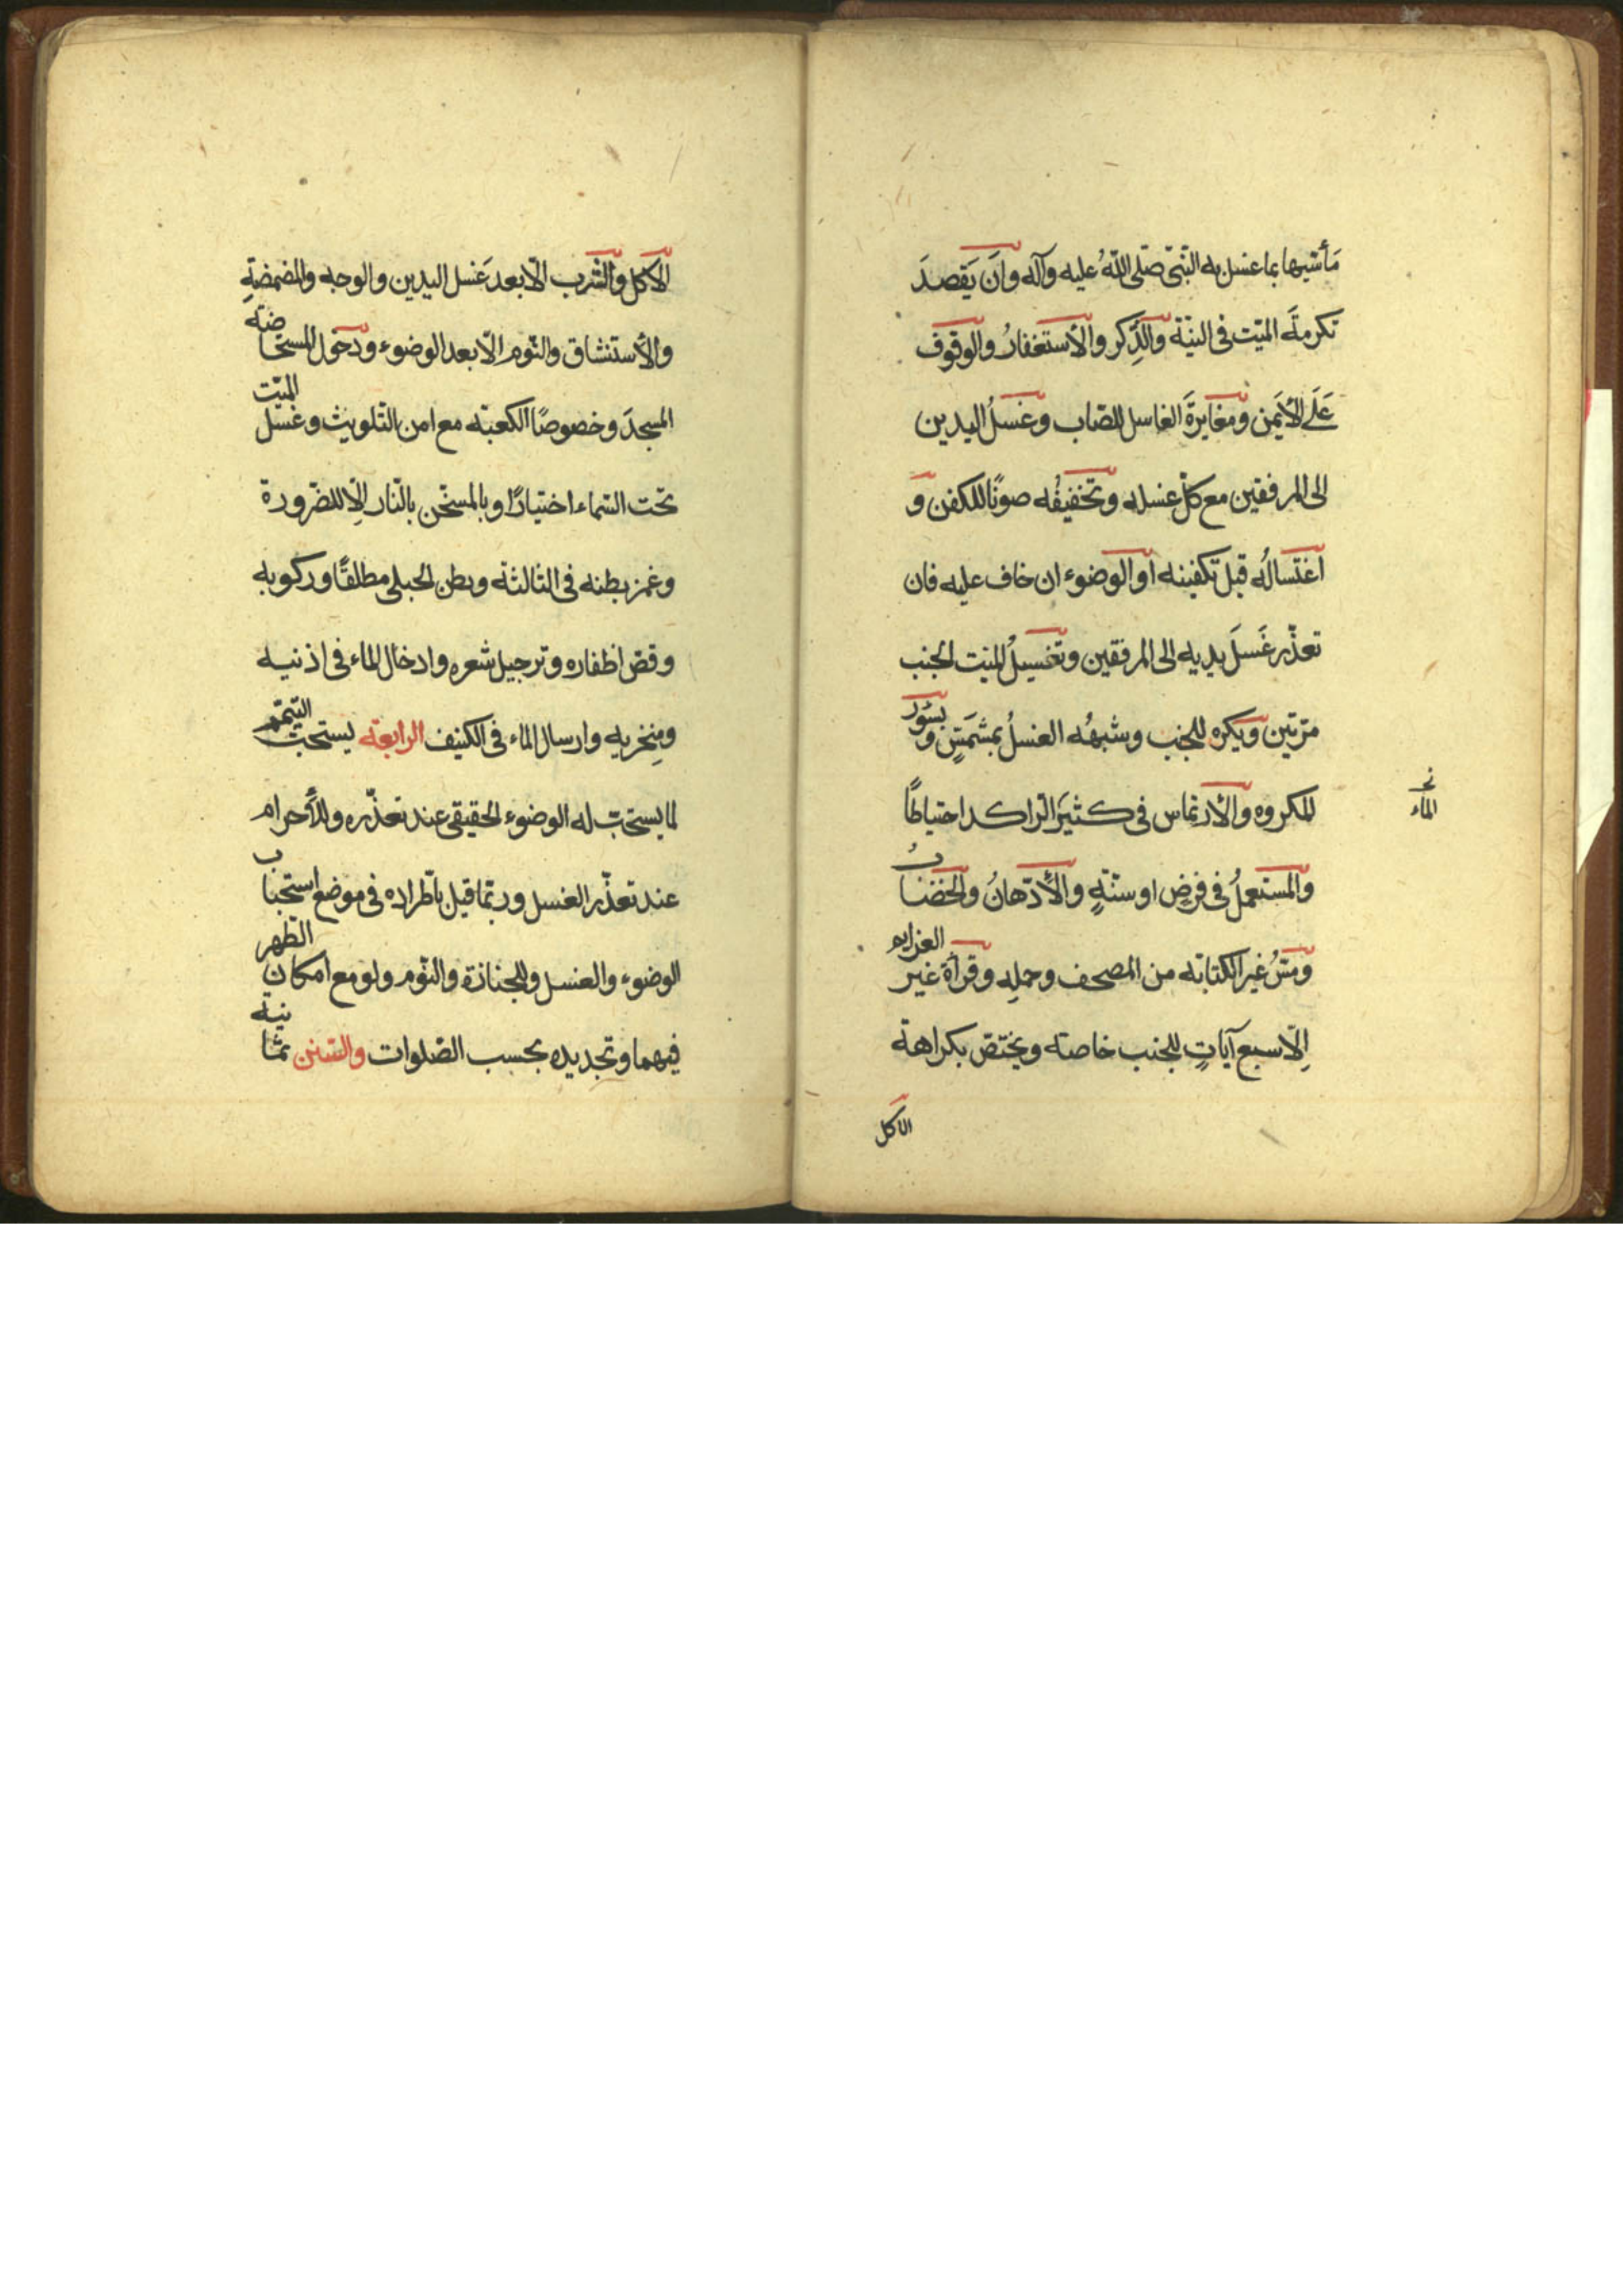 مَأسّيها بما غسل به النّبىّ صلّى اللّهُ عليه وآله وأن يَقصدَ
تكرمةَ الميّت فى النيّة والذِّكر والأستغفارُ والوقوف
عَلَى الأيمن ومغايرةَ الغاسل للصّاب وغسلُ اليدين
الى المرفقين مع كلّ غسله وتخفيفُه صونًا للكفن و
اغتسالُه قبل تكفينه او الوضوء ان خاف عليه فان
تعذّر غَسلَ يديه الى المرفقين وتغسيلُ الميّت الجنب
مرّتين ويكره للجنب وشبهُه الغسلُ بمشمَسٍ وسُور
المكروه والأرتماس فى كثيَر الرّاكد احتياطًا
الماء
والمستعملُ فى فرضٍ او سنّةٍ والأدّهانُ والخضابُ
ومسُّ غير الكتابة من المصحف وحملِه وقرأة غير العزايم
إلّا سبع آياتٍ للجنب خاصّة ويختصّ بكراهة
الأكل
الأكل والشّرب الّا بعد غَسل اليدين والوجه والمضمضةِ
والأستنشاق والنّوم الّا بعد الوضوء ودخول المستحاضة
المسجدَ وخصوصًا الكعبة مع امن التّلويث وغسل الميّت
تحت السّماء اختيارًا وبالمسخّن بالنّار إلّا للضّرورة
وغمز بطنه فى الثالثة وبطن الحبلى مطلقًا وركوبه
وقصّ اظفاره وترجيل شعره وادخال الماء فى اذنيه
ومِنخريه وارسال الماء فى الكنيف الرابعة يستحبّ التيمّم
لما يستحبّ له الوضوء الحقيقى عند تعذّره وللأحرام
عند تعذّر الغسل وربّما قيل باطّراده فى موضع استحباب
الوضوء والغسل وللجنازة والنّوم ولو مع امكان الطّهر
فيهما وتجديده بحسب الصّلوات والسّنن ثمانية